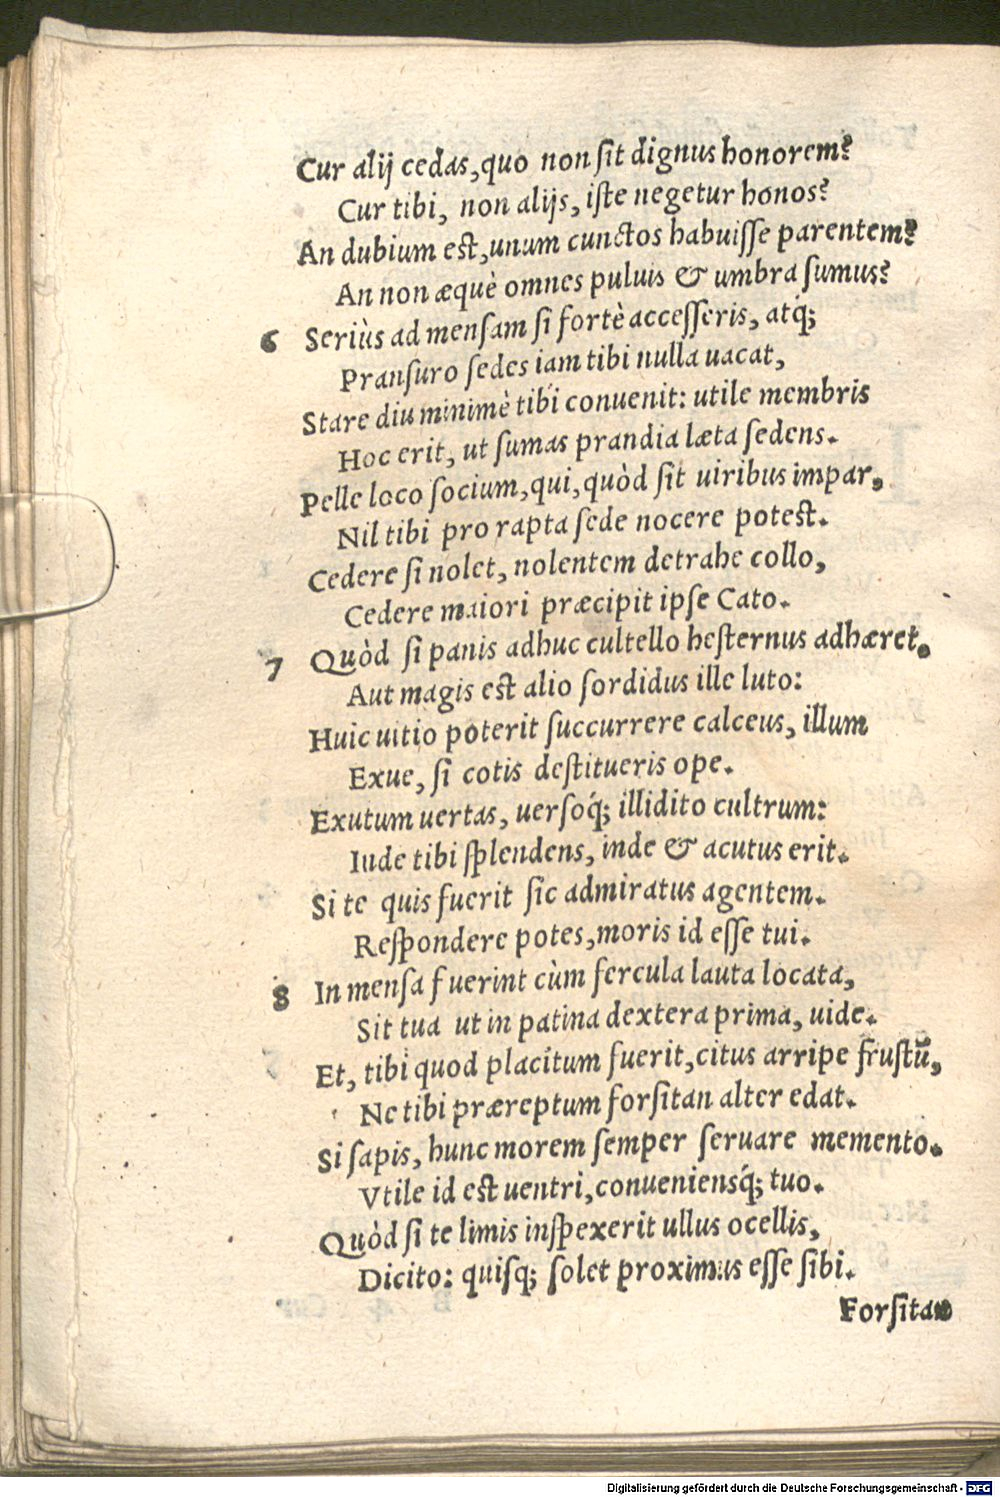 Cur alij cedas, quo non ſit dignus honorem?
Cur tibi, non alijs, iſte negetur honos?
An dubium eſt, unum cunctos habuiſſe parentem?
An non æquè omnes puluis & umbra ſumus?
6 Seriùs ad menſam ſi fortè acceſſeris, atq́;
Pranſuro ſedes iam tibi nulla uacat,
Stare diu minimè tibi conuenit: utile membris
Hoc erit, ut ſumas prandia læta ſedens.
Pelle loco ſocium, qui, quòd ſit uiribus impar,
Nil tibi pro rapta ſede nocere poteſt.
Cedere ſi nolet, nolentem detrahe collo,
Cedere maiori præcipit ipſe Cato.
7 Quòd ſi panis adhuc cultello heſternus adhæret.
Aut magis eſt alio ſordidus ille luto:
Huic uitio poterit ſuccurrere calceus, illum
Exue, ſi cotis deſtitueris ope.
Exutum uertas, uerſoq́; illidito cultrum:
Iude tibi ſplendens, inde & acutus erit.
Si te quis fuerit ſic admiratus agentem.
Reſpondere potes, moris id eſſe tui.
8 In menſa fuerint cùm fercula lauta locata,
Sit tua ut in patina dextera prima, uide.
Et, tibi quod placitum fuerit, citus arripe fruſtũ,
Ne tibi præreptum forſitan alter edat.
Si ſapis, hunc morem ſemper ſeruare memento.
Vtile id eſt uentri, conueniensq́; tuo.
Quòd ſi te limis inſpexerit ullus ocellis,
Dicito: quiſq; ſolet proximus eſſe ſibi.
Forſitan
Digitalisierung gefördert durch die Deutsche Forschungsgemeinschaft - DFG